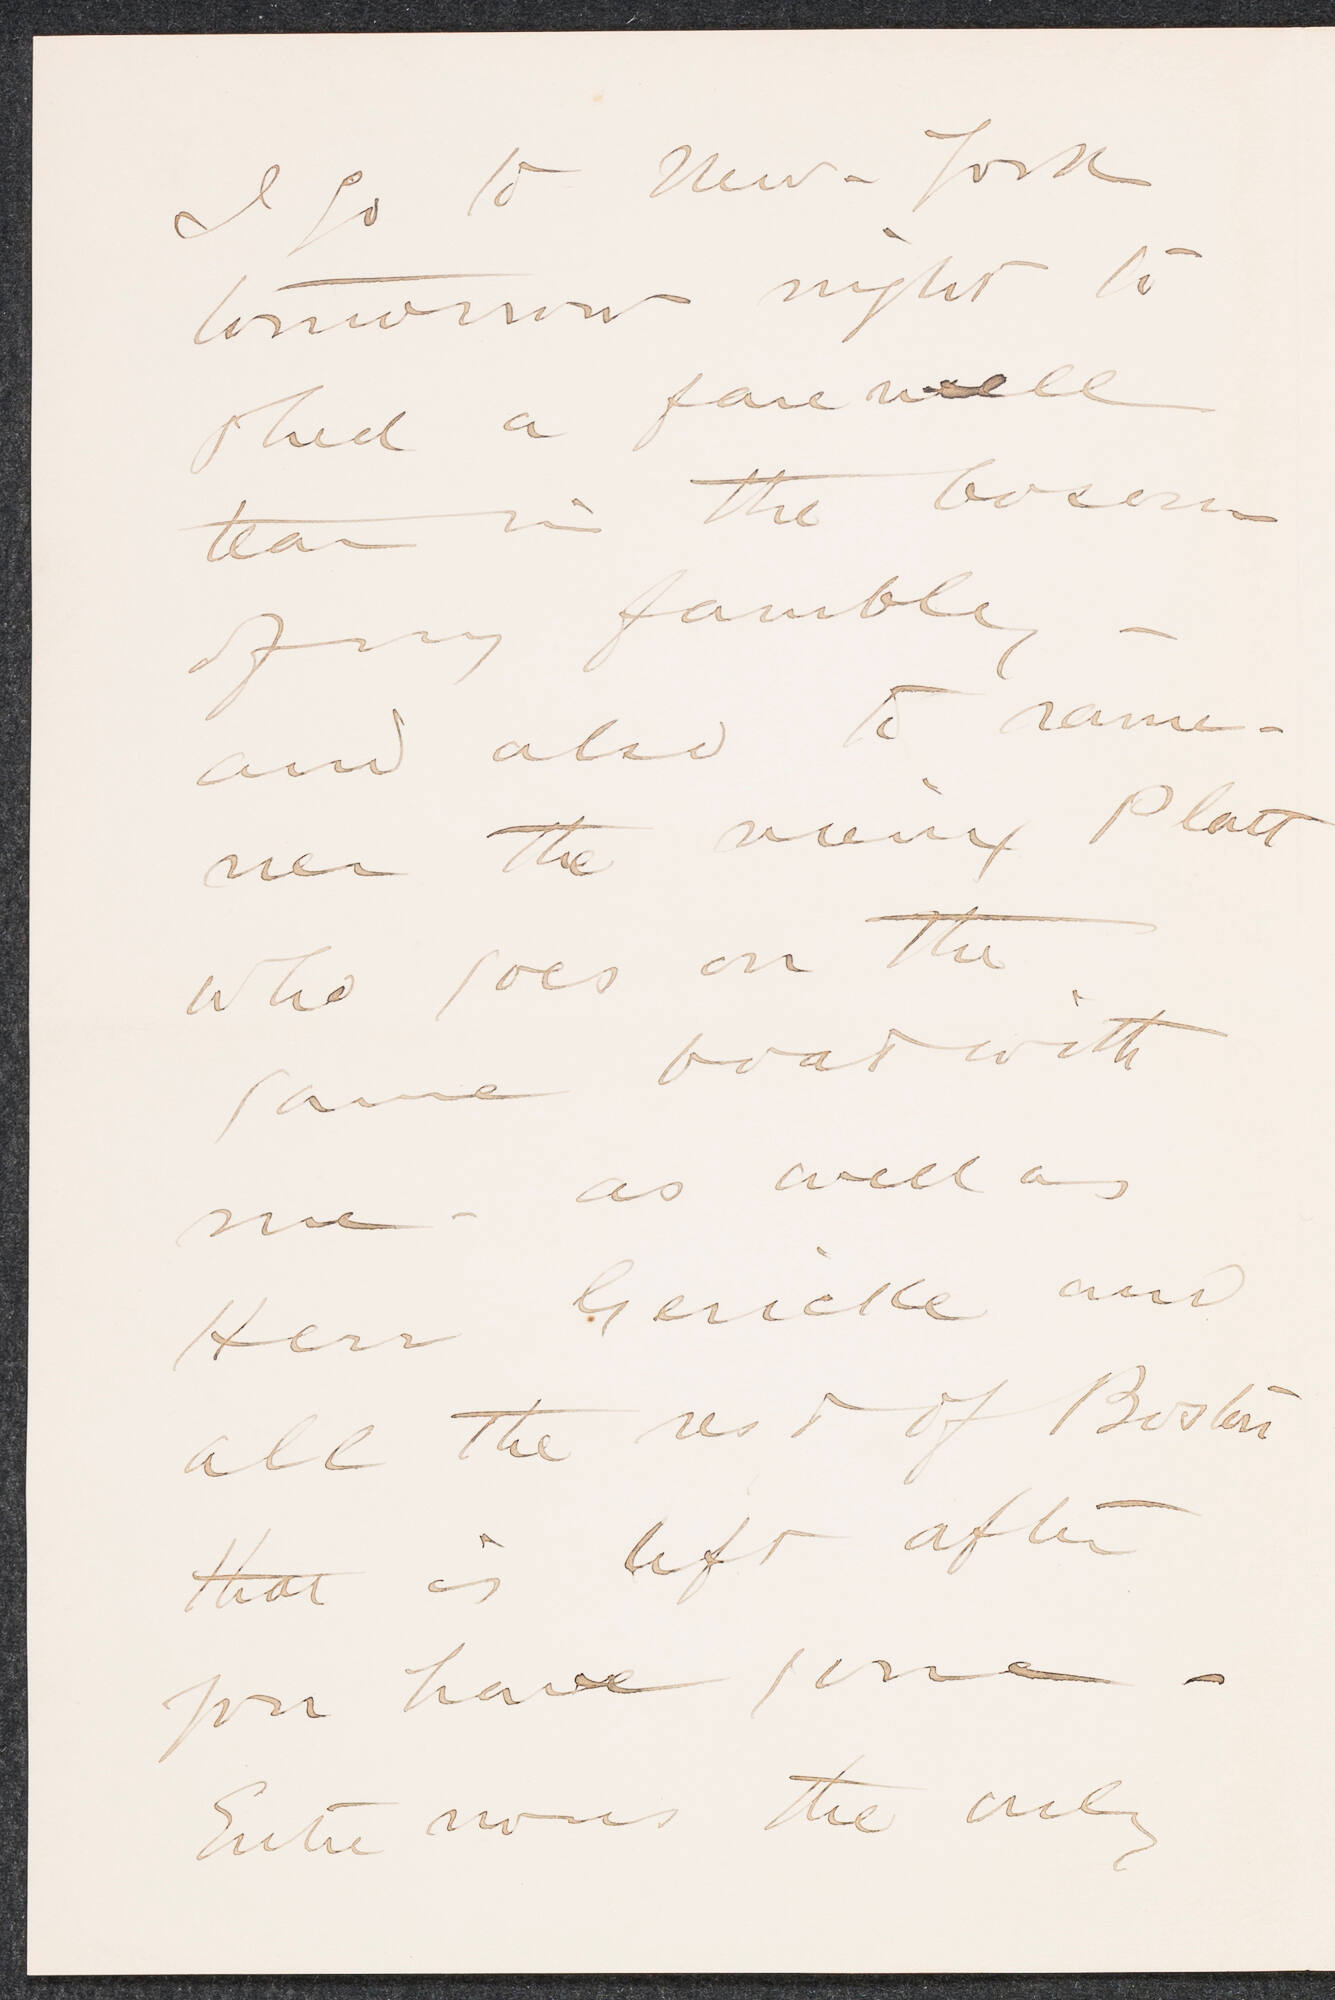 I go to New-York
tomorrow night to
shed a farewell
tear in the bosom
of my fambly -
and also to rame-
ner the Platt
who goes on the
same boat with
me - as well as
Herr Gericke and
all the rest of Boston
that is left after
you have gone -
Entre nous the only